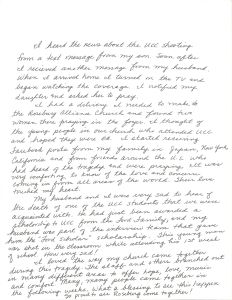 I heard the news about the UCC shooting
from a text message from my son. Soon after
I received another message from my husband.
When I arrived home I turned on the TV and
began watching the coverage. I notified my
daughter and asked her to pray.
I had a delivery I needed to make to
the Roseburg Alliance Church and found two
women there praying in the foyer. I thought of
the young people in our church who attended UCC
and hoped they were ok. I started receiving
Facebook posts from my family in Japan, New York,
California and from friends around the U.S. who
had heard of the tragedy and were praying. It was
very comforting to know of the love and concern
coming in from all areas of the world. Their love
touched my heart.
My husband and I were very sad to hear of
the death of one of the UCC students that we were
acquainted with. He had just been awarded a
scholarship to UCC from the Ford Family, and my
husband was part of the interview team that gave
him the Ford Scholars scholarship. This young man
was shot in the classroom while attending his 1st week
of school. How very sad!
I loved the way my church came together
during this tragedy. The staff and others branched out
in many different areas to offer hope, love, music
and comfort. Many, many people came together
the following weeks. What a blessing to see this happen
So proud to see Roseburg come together!